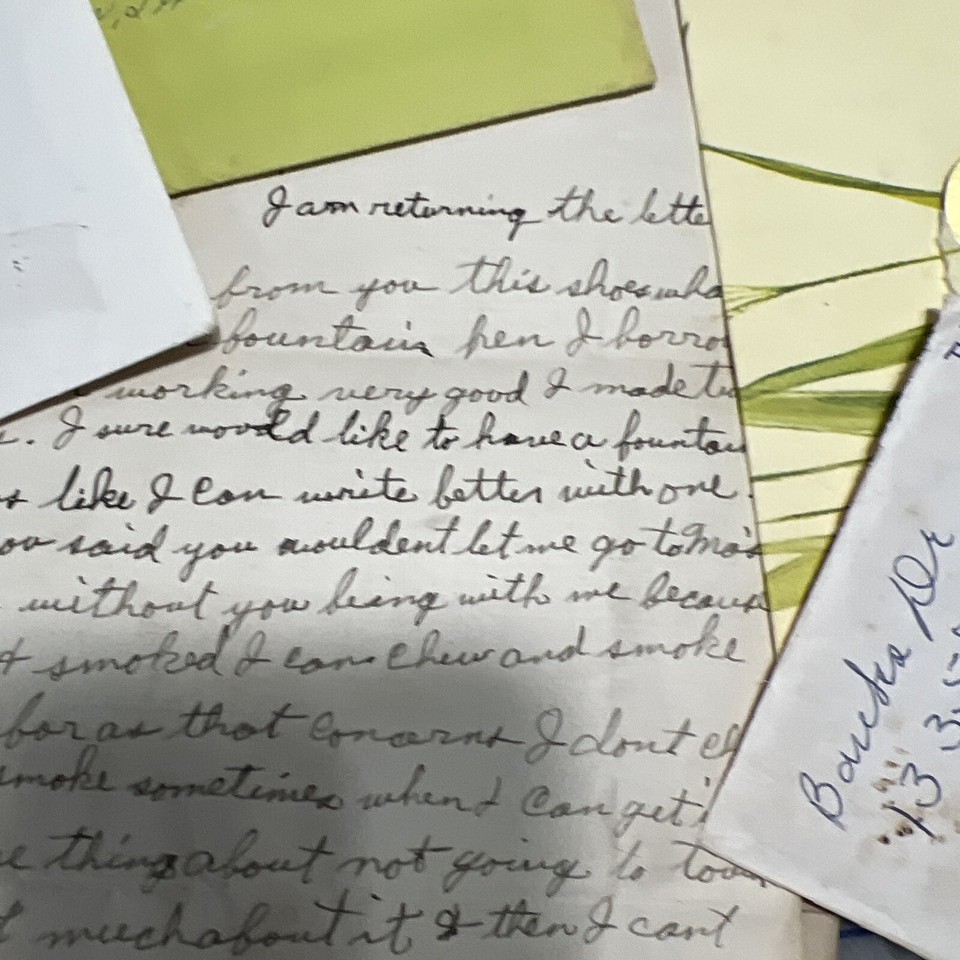 I am returning the lette
from you this shoes wha
fountain hen I borro
working very good I made
. I sure woould like to have a fountain
like I can write better with one.
ou said you wouldent let me go to Ma's
without you being with me becaus
t smoked I can chew and smoke
far as that concerns I dont
smoke sometimes when I can get
e things about not going to town
t much about it & then I cant
Dr
13 3